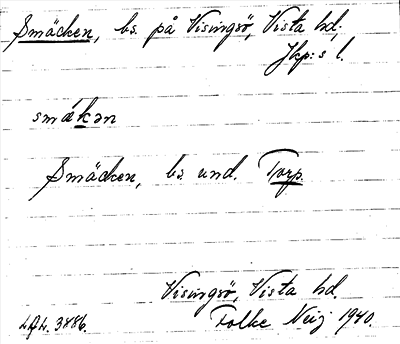 Smäcken, bs. på Visingsö, Vista hd.
Jkp:s l.
smäkən
Smäcken, bs und. Torp.
Visingsö, Vista hd.
Folke Neij 1940.
LAL. 3486.